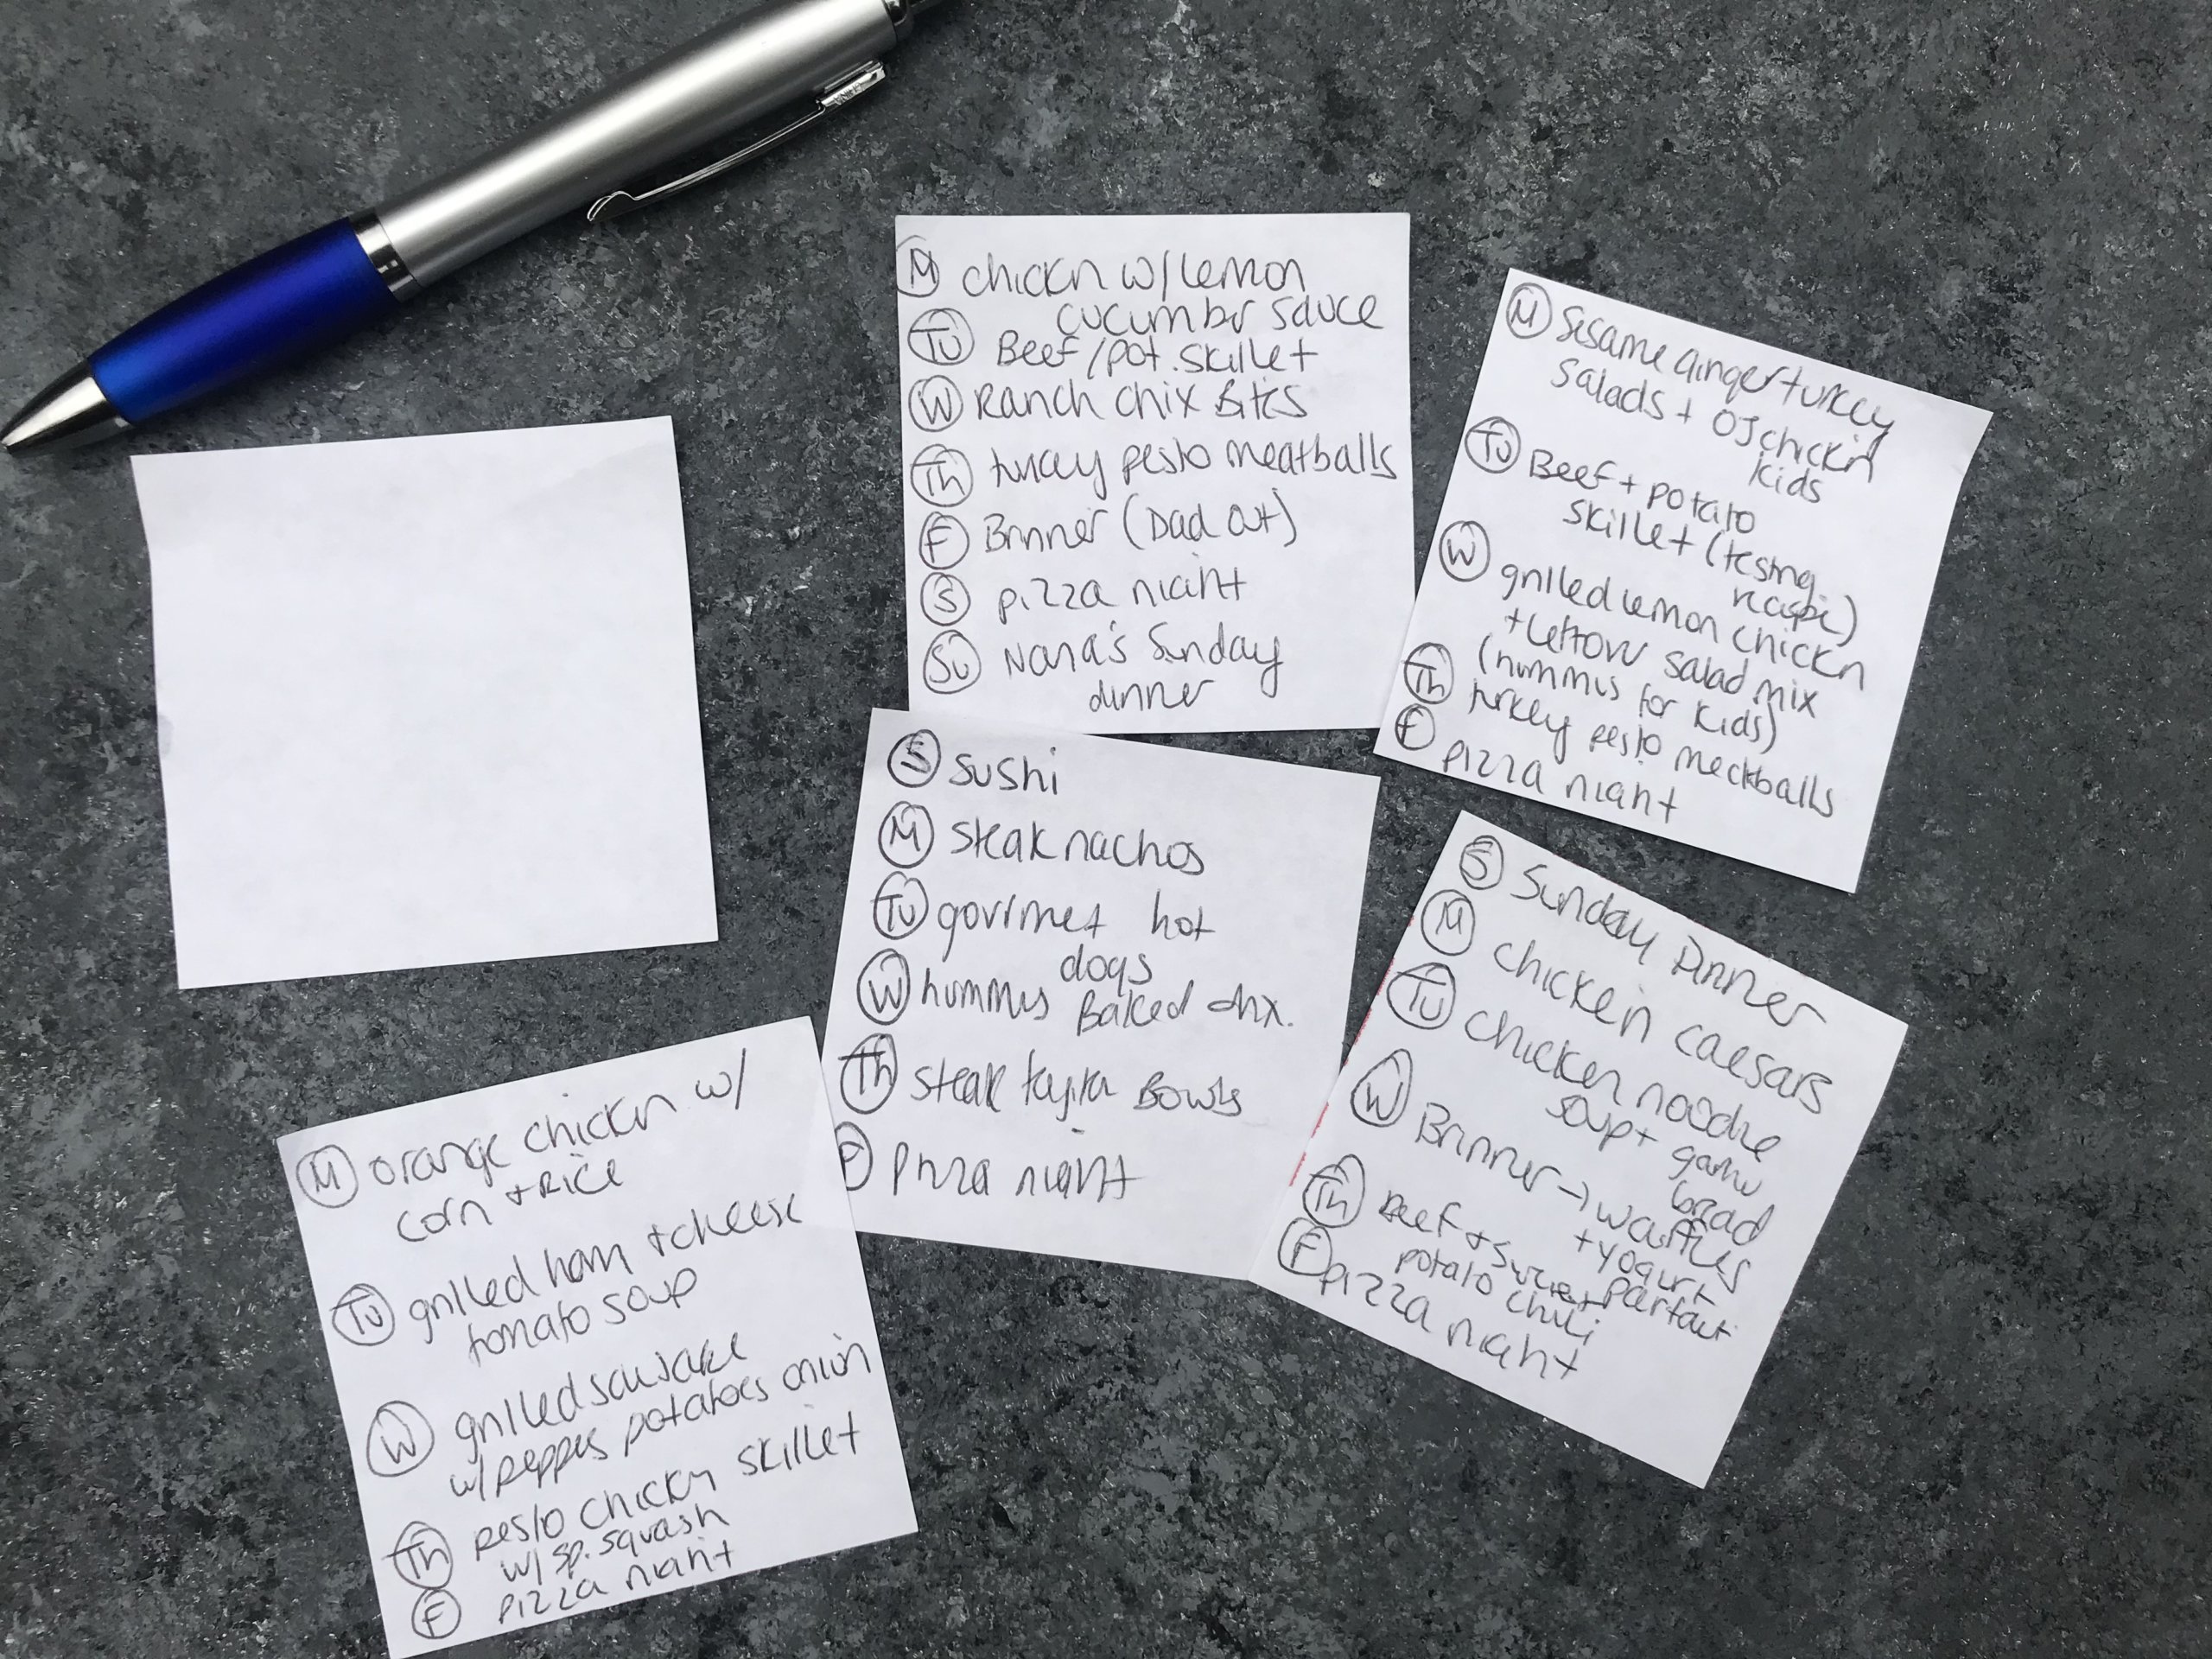 M chickn w/lemon
cucumbr sauce
Tu Beef/pot. skillet
W Ranch chix Bites
Th turkey pesto meatballs
F Brinner (Dad out)
S pizza night
Su Nana's Sunday
dinner
M Sesame ginger turkey
Salads + OJ chickn
kids
Tu Beef + potato
skillet (testing
recipe)
W grilled lemon chickn
+ leftovr salad mix
(hummus for kids)
Th turkey pesto meatballs
F pizza night
S sushi
M Steak nachos
Tu gourmet hot
dogs
W hummus Baked chx.
Th steak fajita Bowls
F Pizza night
S Sunday Dinner
M chicken caesars
Tu chicken noodle
soup + garlic
bread
W Brinner → waffles
+ yogurt
parfait
Th Beef + sweet
potato chili
F pizza night
M orange chickn w/
corn + Rice
Tu grilled ham + cheese
tomato soup
W grilled sausage
w/ peppers potatoes onion
Th pesto chickn skillet
w/ sp. squash
F pizza night